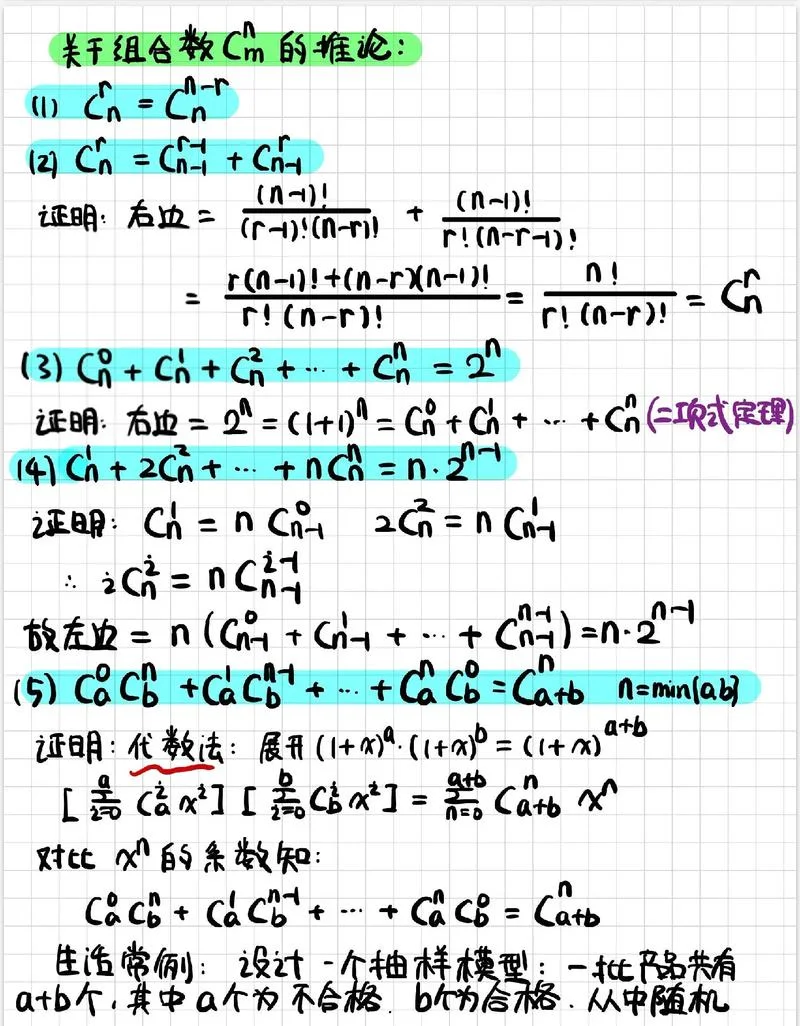 关于组合数 C_m^n 的推论：
(1) C_n^r = C_n^{n-r}
(2) C_n^r = C_{n-1}^{r-1} + C_{n-1}^r
证明：右边 = (n-1)!/((r-1)!(n-r)!) + (n-1)!/(r!(n-r-1)!)
= (r(n-1)!+(n-r)(n-1)!)/(r!(n-r)!) = n!/(r!(n-r)!) = C_n^r
(3) C_n^0 + C_n^1 + C_n^2 + … + C_n^n = 2^n
证明：右边 = 2^n = (1+1)^n = C_n^0 + C_n^1 + … + C_n^n (二项式定理)
(4) C_n^1 + 2C_n^2 + … + nC_n^n = n·2^{n-1}
证明：C_n^1 = n C_{n-1}^0 2C_n^2 = n C_{n-1}^1
∴ iC_n^i = n C_{n-1}^{i-1}
故左边 = n (C_{n-1}^0 + C_{n-1}^1 + … + C_{n-1}^{n-1}) = n·2^{n-1}
(5) C_a^0 C_b^n + C_a^1 C_b^{n-1} + … + C_a^n C_b^0 = C_{a+b}^n n=min{a,b}
证明：代数法：展开 (1+x)^a·(1+x)^b = (1+x)^{a+b}
[∑_{i=0}^a C_a^i x^i] [∑_{i=0}^b C_b^i x^i] = ∑_{n=0}^{a+b} C_{a+b}^n x^n
对比 x^n 的系数知：
C_a^0 C_b^n + C_a^1 C_b^{n-1} + … + C_a^n C_b^0 = C_{a+b}^n
生活常例：设计一个抽样模型：一批产品共有
a+b个，其中a个为不合格，b个为合格．从中随机